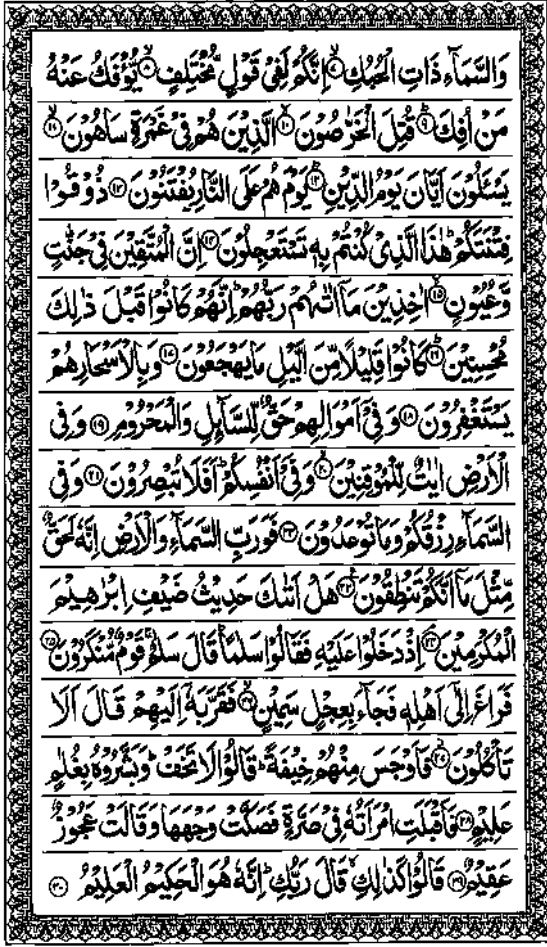 وَالسَّمَآءِ ذَاتِ الْحُبُكِ ۙ﴿۷﴾ اِنَّكُمْ لَفِیْ قَوْلٍ مُّخْتَلِفٍ ۙ﴿۸﴾ یُّؤْفَكُ عَنْهُ
مَنْ اُفِكَ ؕ﴿۹﴾ قُتِلَ الْخَرّٰصُوْنَ ۙ﴿۱۰﴾ الَّذِیْنَ هُمْ فِیْ غَمْرَةٍ سَاهُوْنَ ۙ﴿۱۱﴾
یَسْـَٔلُوْنَ اَیَّانَ یَوْمُ الدِّیْنِ ؕ﴿۱۲﴾ یَوْمَ هُمْ عَلَی النَّارِ یُفْتَنُوْنَ ﴿۱۳﴾ ذُوْقُوْا
فِتْنَتَكُمْ ؕ هٰذَا الَّذِیْ كُنْتُمْ بِهٖ تَسْتَعْجِلُوْنَ ﴿۱۴﴾ اِنَّ الْمُتَّقِیْنَ فِیْ جَنّٰتٍ
وَّعُیُوْنٍ ۙ﴿۱۵﴾ اٰخِذِیْنَ مَاۤ اٰتٰىهُمْ رَبُّهُمْ ؕ اِنَّهُمْ كَانُوْا قَبْلَ ذٰلِكَ
مُحْسِنِیْنَ ؕ﴿۱۶﴾ كَانُوْا قَلِیْلًا مِّنَ الَّیْلِ مَا یَهْجَعُوْنَ ﴿۱۷﴾ وَبِالْاَسْحَارِ هُمْ
یَسْتَغْفِرُوْنَ ﴿۱۸﴾ وَفِیْۤ اَمْوَالِهِمْ حَقٌّ لِّلسَّآىِٕلِ وَالْمَحْرُوْمِ ﴿۱۹﴾ وَفِی
الْاَرْضِ اٰیٰتٌ لِّلْمُوْقِنِیْنَ ۙ﴿۲۰﴾ وَفِیْۤ اَنْفُسِكُمْ ؕ اَفَلَا تُبْصِرُوْنَ ﴿۲۱﴾ وَفِی
السَّمَآءِ رِزْقُكُمْ وَمَا تُوْعَدُوْنَ ﴿۲۲﴾ فَوَرَبِّ السَّمَآءِ وَالْاَرْضِ اِنَّهٗ لَحَقٌّ
مِّثْلَ مَاۤ اَنَّكُمْ تَنْطِقُوْنَ ﴿۲۳﴾ هَلْ اَتٰىكَ حَدِیْثُ ضَیْفِ اِبْرٰهِیْمَ
الْمُكْرَمِیْنَ ﴿۲۴﴾ اِذْ دَخَلُوْا عَلَیْهِ فَقَالُوْا سَلٰمًا ؕ قَالَ سَلٰمٌ ۚ قَوْمٌ مُّنْكَرُوْنَ ﴿۲۵﴾
فَرَاغَ اِلٰۤی اَهْلِهٖ فَجَآءَ بِعِجْلٍ سَمِیْنٍ ۙ﴿۲۶﴾ فَقَرَّبَهٗۤ اِلَیْهِمْ قَالَ اَلَا
تَاْكُلُوْنَ ﴿۲۷﴾ فَاَوْجَسَ مِنْهُمْ خِیْفَةً ؕ قَالُوْا لَا تَخَفْ ؕ وَبَشَّرُوْهُ بِغُلٰمٍ
عَلِیْمٍ ﴿۲۸﴾ فَاَقْبَلَتِ امْرَاَتُهٗ فِیْ صَرَّةٍ فَصَكَّتْ وَجْهَهَا وَقَالَتْ عَجُوْزٌ
عَقِیْمٌ ﴿۲۹﴾ قَالُوْا كَذٰلِكِ ۙ قَالَ رَبُّكِ ؕ اِنَّهٗ هُوَ الْحَكِیْمُ الْعَلِیْمُ ﴿۳۰﴾